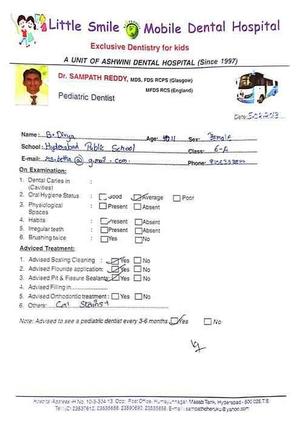 Little Smile Mobile Dental Hospital
Exclusive Dentistry for kids
A UNIT OF ASHWINI DENTAL HOSPITAL (Since 1997)
Dr. SAMPATH REDDY, MDS, FDS RCPS (Glasgow)
MFDS RCS (England)
Pediatric Dentist
Date:
Name: B. Divya Age: Sex: Female
School: Hyderabad Public School Class: 6-A
E-mail: @ gmail.com Phone:
On Examination:
1. Dental Caries in :
(Cavities)
2. Oral Hygiene Status : Good Average Poor
3. Physiological : Present Absent
Spaces
4. Habits : Present Absent
5. Irregular teeth : Present Absent
6. Brushing twice : Yes No
Adviced Treatment:
1. Advised Scaling Cleaning : Yes No
2. Advised Flouride application: Yes No
3. Advised Pit & Fissure Sealants: Yes No
4. Advised Filling in
5. Advised Orthodontic treatment : Yes No
6. Others: Stains
Note: Advised to see a pediatric dentist every 3-6 months Yes No